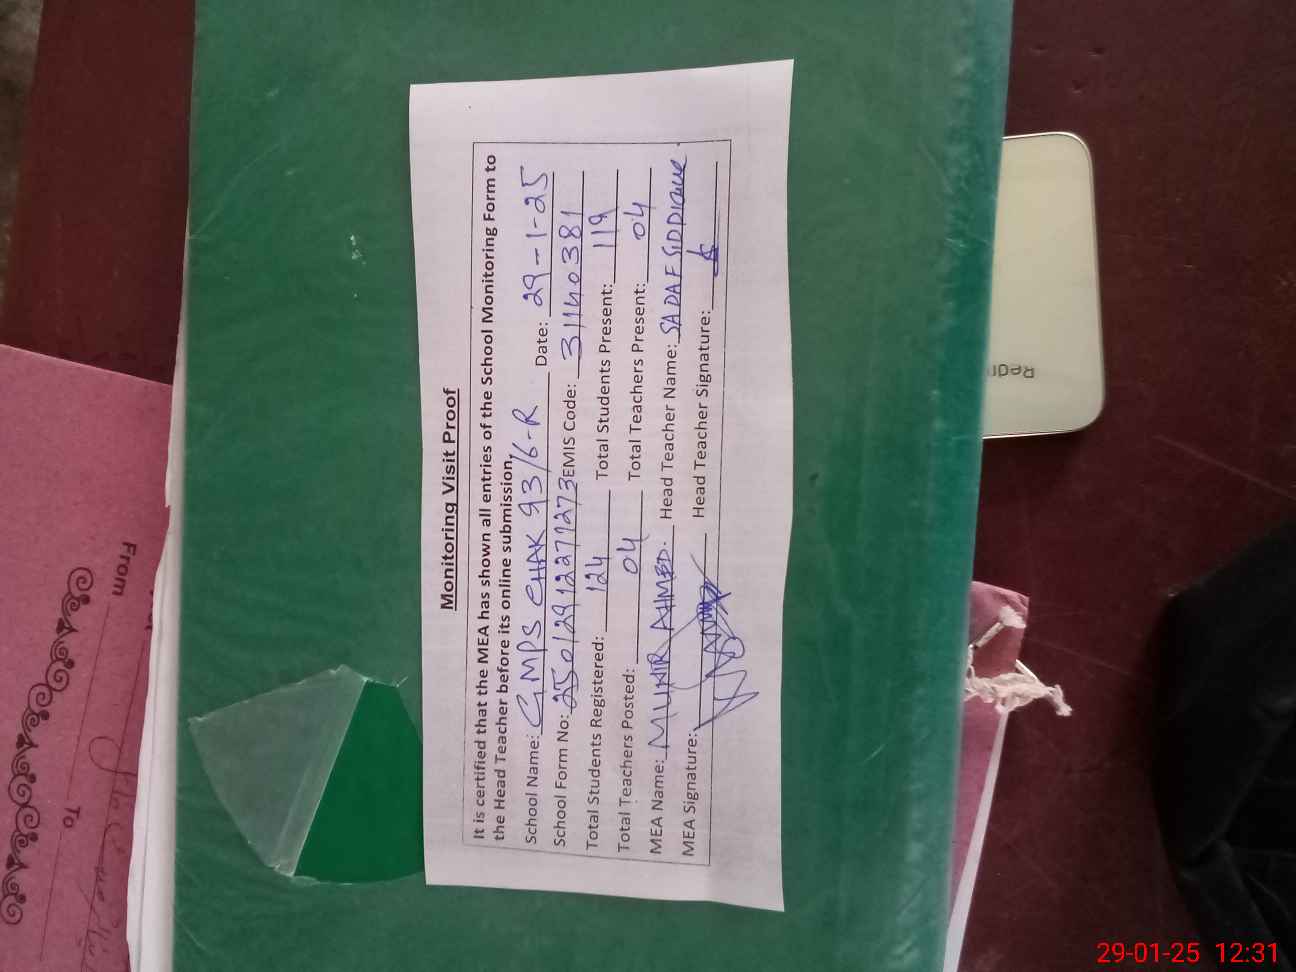 Monitoring Visit Proof
It is certified that the MEA has shown all entries of the School Monitoring Form to
the Head Teacher before its online submission.
School Name: GMPS CHAK 93/6-R Date: 29-1-25
School Form No: 250129122771273 EMIS Code: 31140381
Total Students Registered: 124 Total Students Present: 119
Total Teachers Posted: 04 Total Teachers Present: 04
MEA Name: MUNIR AHMED. Head Teacher Name: SADAF SIDDIQUE
MEA Signature: Head Teacher Signature:
From
To
29-01-25 12:31